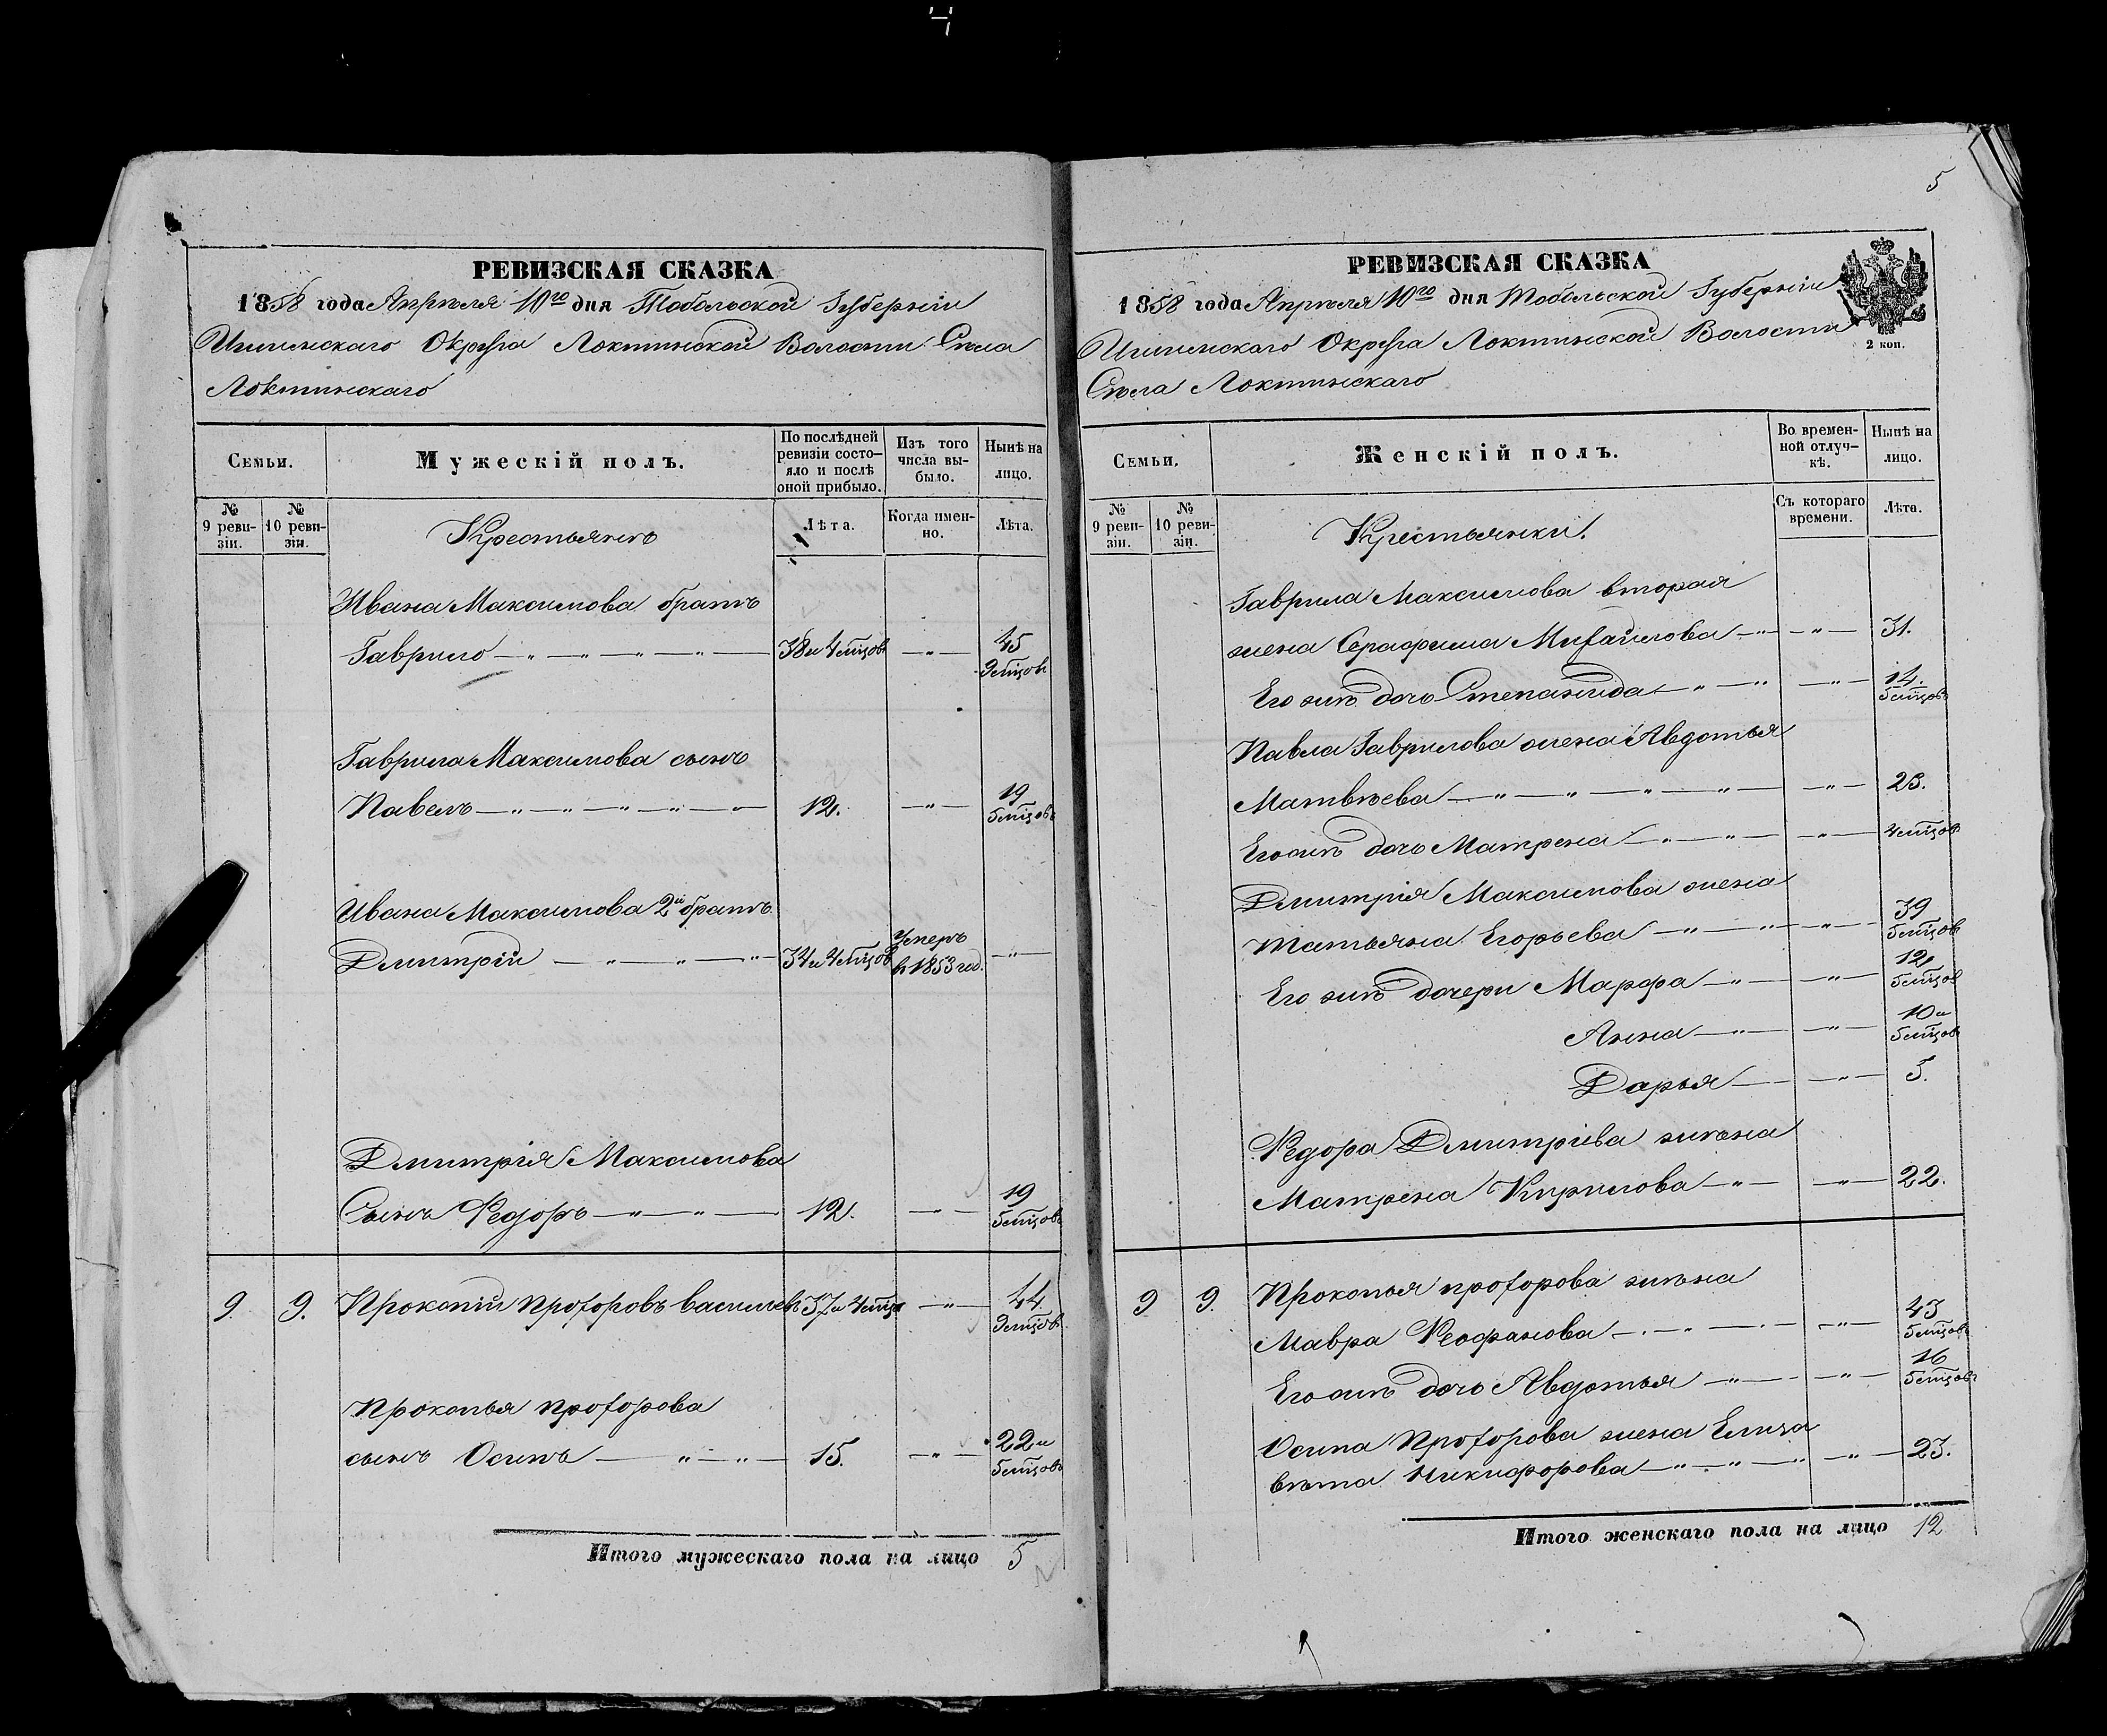 РЕВИЗСКАЯ СКАЗКА
1858 года Апрѣля 10го дня Тобольской Губерніи
Ишимскаго Округа Локтинской Волости Села
Локтинскаго
Семьи.
Мужескій полъ.
По послѣдней ревизіи состояло и послѣ оной прибыло.
Изъ того числа выбыло.
Нынѣ на лицо.
№ 9 ревизіи.
№ 10 ревизіи.
Крестьянъ
Лѣта.
Когда именно.
Лѣта.
Ивана Максимова братъ
Гаврило 38 и 4 мцов 45 9 мцовъ
Гаврила Максимова сынъ
Павелъ 12. 19 5 мцовъ
Ивана Максимова 2й братъ
Дмитрій 34 и 4 мцов Умеръ в 1853 год.
Дмитрія Максимова
Сынъ Федоръ 12. 19 5 мцовъ
9. 9. Прокопій Прохоровъ Василев 37 и 4 мцв 44 9 мцовъ
Прокопья Прохорова
сынъ Осипъ 15. 22 и 5 мцовъ
Итого мужескаго пола на лицо 5
5
РЕВИЗСКАЯ СКАЗКА
1858 года Апрѣля 10го дня Тобольской Губерніи
2 коп.
Ишимскаго Округа Локтинской Волости
Села Локтинскаго
Семьи.
Женскій полъ.
Во временной отлучкѣ.
Нынѣ на лицо.
№ 9 ревизіи.
№ 10 ревизіи.
Крестьянки.
Съ котораго времени.
Лѣта.
Гаврила Максимова вторая
жена Серафима Михайлова 31.
Его жпѣ дочь Степанида 14. 5 мцовъ
Павла Гаврилова жена Авдотья
Матвѣева 23.
Его жпѣ дочь Матрена 4 мцов
Дмитрія Максимова жена
Татьяна Егорьева 39 5 мцовъ
Его жпѣ дочери Марфа 12 5 мцов
Анна 10 и 5 мцов
Дарья 5.
Федора Дмитріева жпѣна
Матрена Кирилова 22.
9 9. Прокопья Прохорова жпѣна
Мавра Феофанова 43 5 мцовъ
Его жпѣ дочь Авдотья 16 5 мцовъ
Осипа Прохорова жена Елиза
вѣта Никифорова 23.
Итого женскаго пола на лицо 12